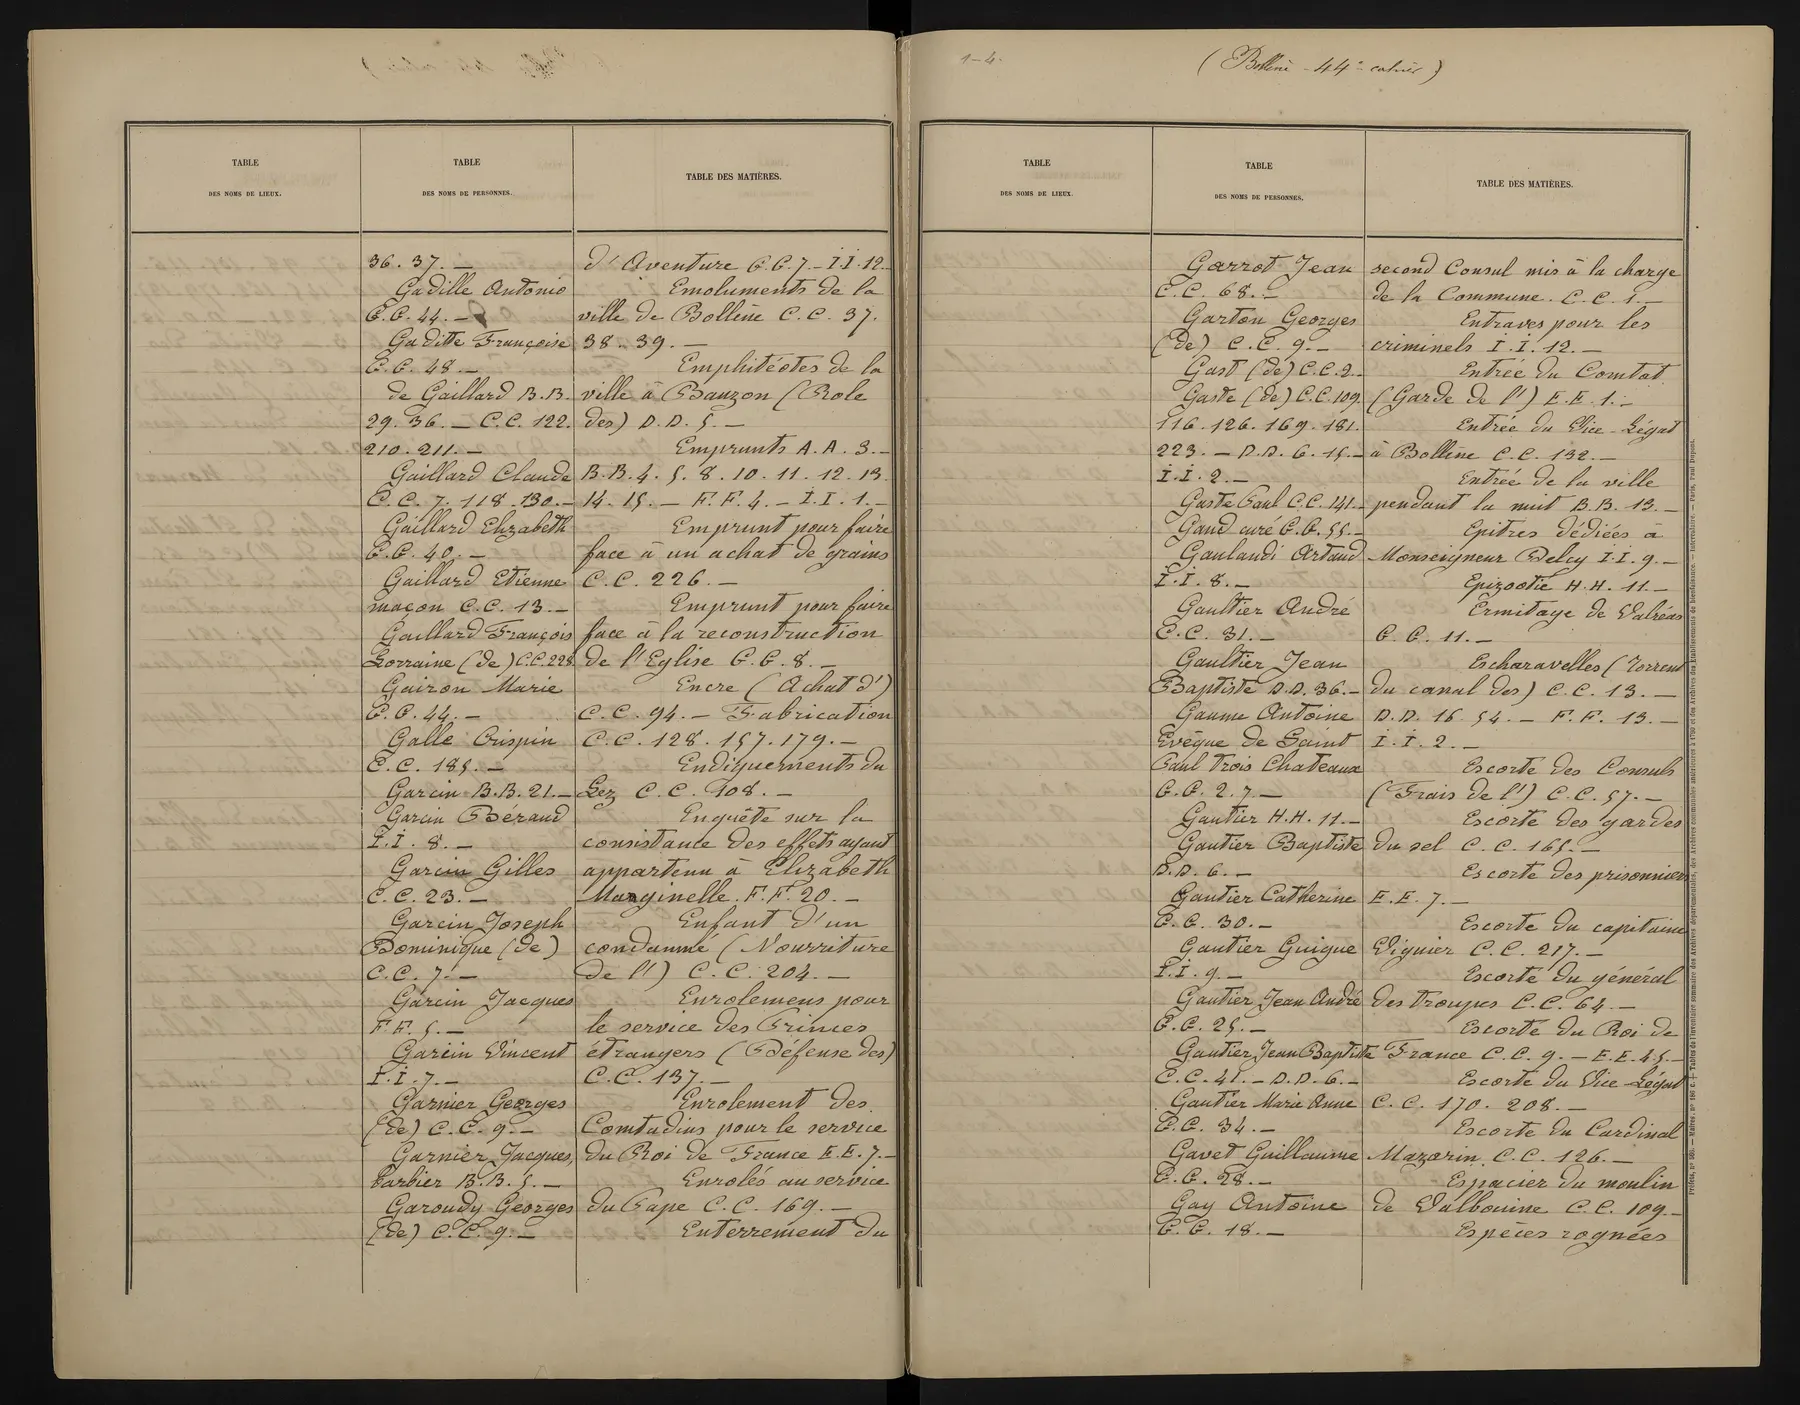 TABLE
DES NOMS DE LIEUX.
TABLE
DES NOMS DE PERSONNES.
TABLE DES MATIÈRES.
36. 37. —
Gadille Antonio
G.G. 44. —
Gaditte Françoise
G.G. 48. —
de Gaillard B.B.
29. 36. — C.C. 122.
210. 211. —
Gaillard Claude
C.C. 7. 118. 130. —
Gaillard Elizabeth
G.G. 40. —
Gaillard Etienne
maçon C.C. 13. —
Gaillard François
Lorraine (de) C.C. 228
Gairon Marie
G.G. 44. —
Galle Crispin
C.C. 185. —
Garcin B.B. 21. —
Garcin Bérand
I.I. 8. —
Garcin Gilles
C.C. 23. —
Garcin Joseph
Dominique (de)
C.C. 7. —
Garcin Jacques
F.F. 5. —
Garcin Vincent
I.I. 7. —
Garnier Georges
(de) C.C. 9. —
Garnier Jacques,
barbier B.B. 5. —
Garoudy Georges
(de) C.C. 9. —
d'Aventure G.G. 7. — I.I. 12.
Emoluments de la
ville de Bollène C.C. 37.
38. 39. —
Emphitéotes de la
ville à Bauzon (Role
des) D.D. 5. —
Emprunts A.A. 3. —
B.B. 4. 5. 8. 10. 11. 12. 13.
14. 15. — F.F. 4. — I.I. 1. —
Emprunt pour faire
face à un achat de grains
C.C. 226. —
Emprunt pour faire
face à la reconstruction
de l'Eglise G.G. 8. —
Encre (Achat d')
C.C. 94. — Fabrication
C.C. 128. 157. 179. —
Endiguements du
Lez C.C. 108. —
Enquête sur la
consistance des effets ayant
appartenu à Elizabeth
Marginelle. F.F. 20. —
Enfant d'un
condamné (Nourriture
de l') C.C. 204. —
Enrolemens pour
le service des Princes
étrangers (Défense des)
C.C. 137. —
Enrolement des
Comtadins pour le service
du Roi de France E.E. 7. —
Enrolés au service
du Pape C.C. 169. —
Enterrement du
1-4.
(Bollène 44e cahier)
TABLE
DES NOMS DE LIEUX.
TABLE
DES NOMS DE PERSONNES.
TABLE DES MATIÈRES.
Garrot Jean
C.C. 68. —
Garton Georges
(de) C.C. 9. —
Gast (de) C.C. 2. —
Gaste (de) C.C. 109.
116. 126. 169. 181.
223. — D.D. 6. 15. —
I.I. 2. —
Gaste Paul C.C. 141. —
Gaud curé G.G. 55. —
Gaulandi Artaud
I.I. 8. —
Gaultier André
C.C. 31. —
Gaultier Jean
Baptiste D.D. 36. —
Gaume Antoine
Evêque de Saint
Paul trois Chateaux
G.G. 2. 7. —
Gautier H.H. 11. —
Gautier Baptiste
D.D. 6. —
Gautier Catherine
G.G. 30. —
Gautier Guigue
I.I. 9. —
Gautier Jean André
G.G. 25. —
Gautier Jean Baptiste
C.C. 41. — D.D. 6. —
Gautier Marie Anne
G.G. 34. —
Gavet Guillaume
G.G. 28. —
Gay Antoine
G.G. 18. —
second Consul mis à la charge
de la Commune. C.C. 1. —
Entraves pour les
criminels I.I. 12. —
Entrée du Comtat
(Garde de l') E.E. 1. —
Entrée du Vice-Légat
à Bollène C.C. 132. —
Entrée de la ville
pendant la nuit B.B. 13. —
Epitres dédiées à
Monseigneur Delcy I.I. 9. —
Epizootie H.H. 11. —
Ermitage de Valréas
G.G. 11. —
Escharavelles (Torrent
du canal des) C.C. 13. —
D.D. 16. 54. — F.F. 13. —
I.I. 2. —
Escorte des Consuls
(Frais de l') C.C. 57. —
Escorte des gardes
du sel C.C. 165. —
Escorte des prisonniers
E.E. 7. —
Escorte du capitaine
Viguier C.C. 217. —
Escorte du général
des troupes C.C. 64. —
Escorte du Roi de
France C.C. 9. — E.E. 45. —
Escorte du Vice-Légat
C.C. 170. 208. —
Escorte du Cardinal
Mazarin. C.C. 126. —
Espacier du moulin
de Valbouine C.C. 109. —
Espèces rognées